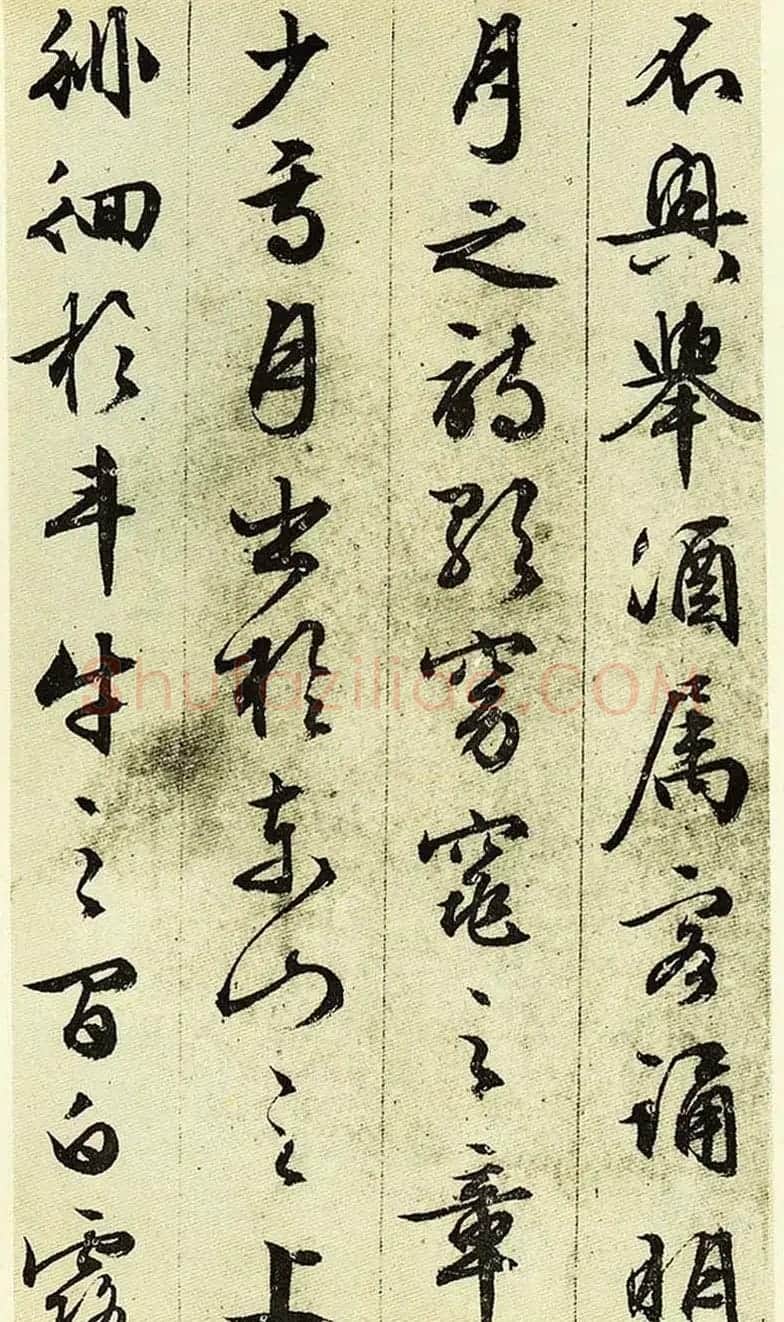 不興舉酒属客誦明
月之詩歌窈窕之章
少焉月出於東山之上
徘徊於斗牛之間白露
shufaziliao.COM